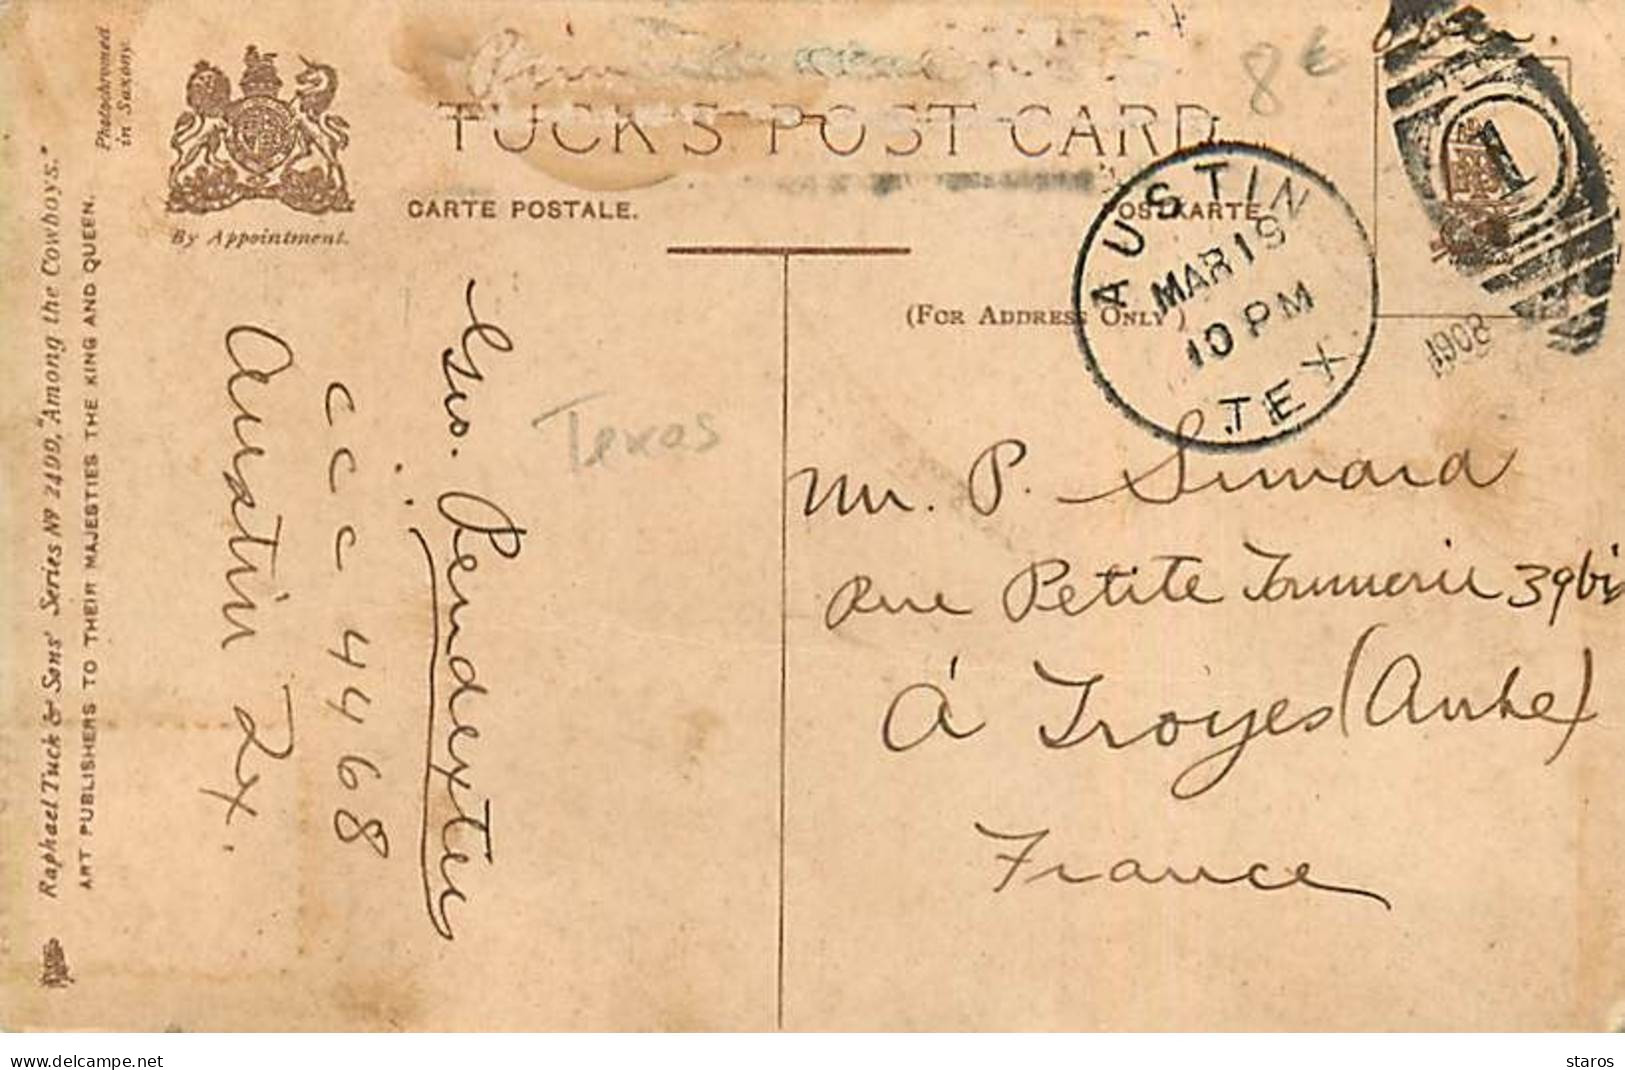 TUCK'S POST CARD
CARTE POSTALE.
POSTKARTE
By Appointment.
(FOR ADDRESS ONLY)
Photochromed
in Saxony.
Raphael Tuck & Sons' Series No 2499, "Among the Cowboys."
ART PUBLISHERS TO THEIR MAJESTIES THE KING AND QUEEN.
8€
AUSTIN
MAR 19
10 PM
TEX.
1908
1
Geo. Pendexter
c c c 4468
Austin Tx.
Texas
Mr. P. Simard
Rue Petite 39bis
á Troyes (Aube)
France
www.delcampe.net
staros